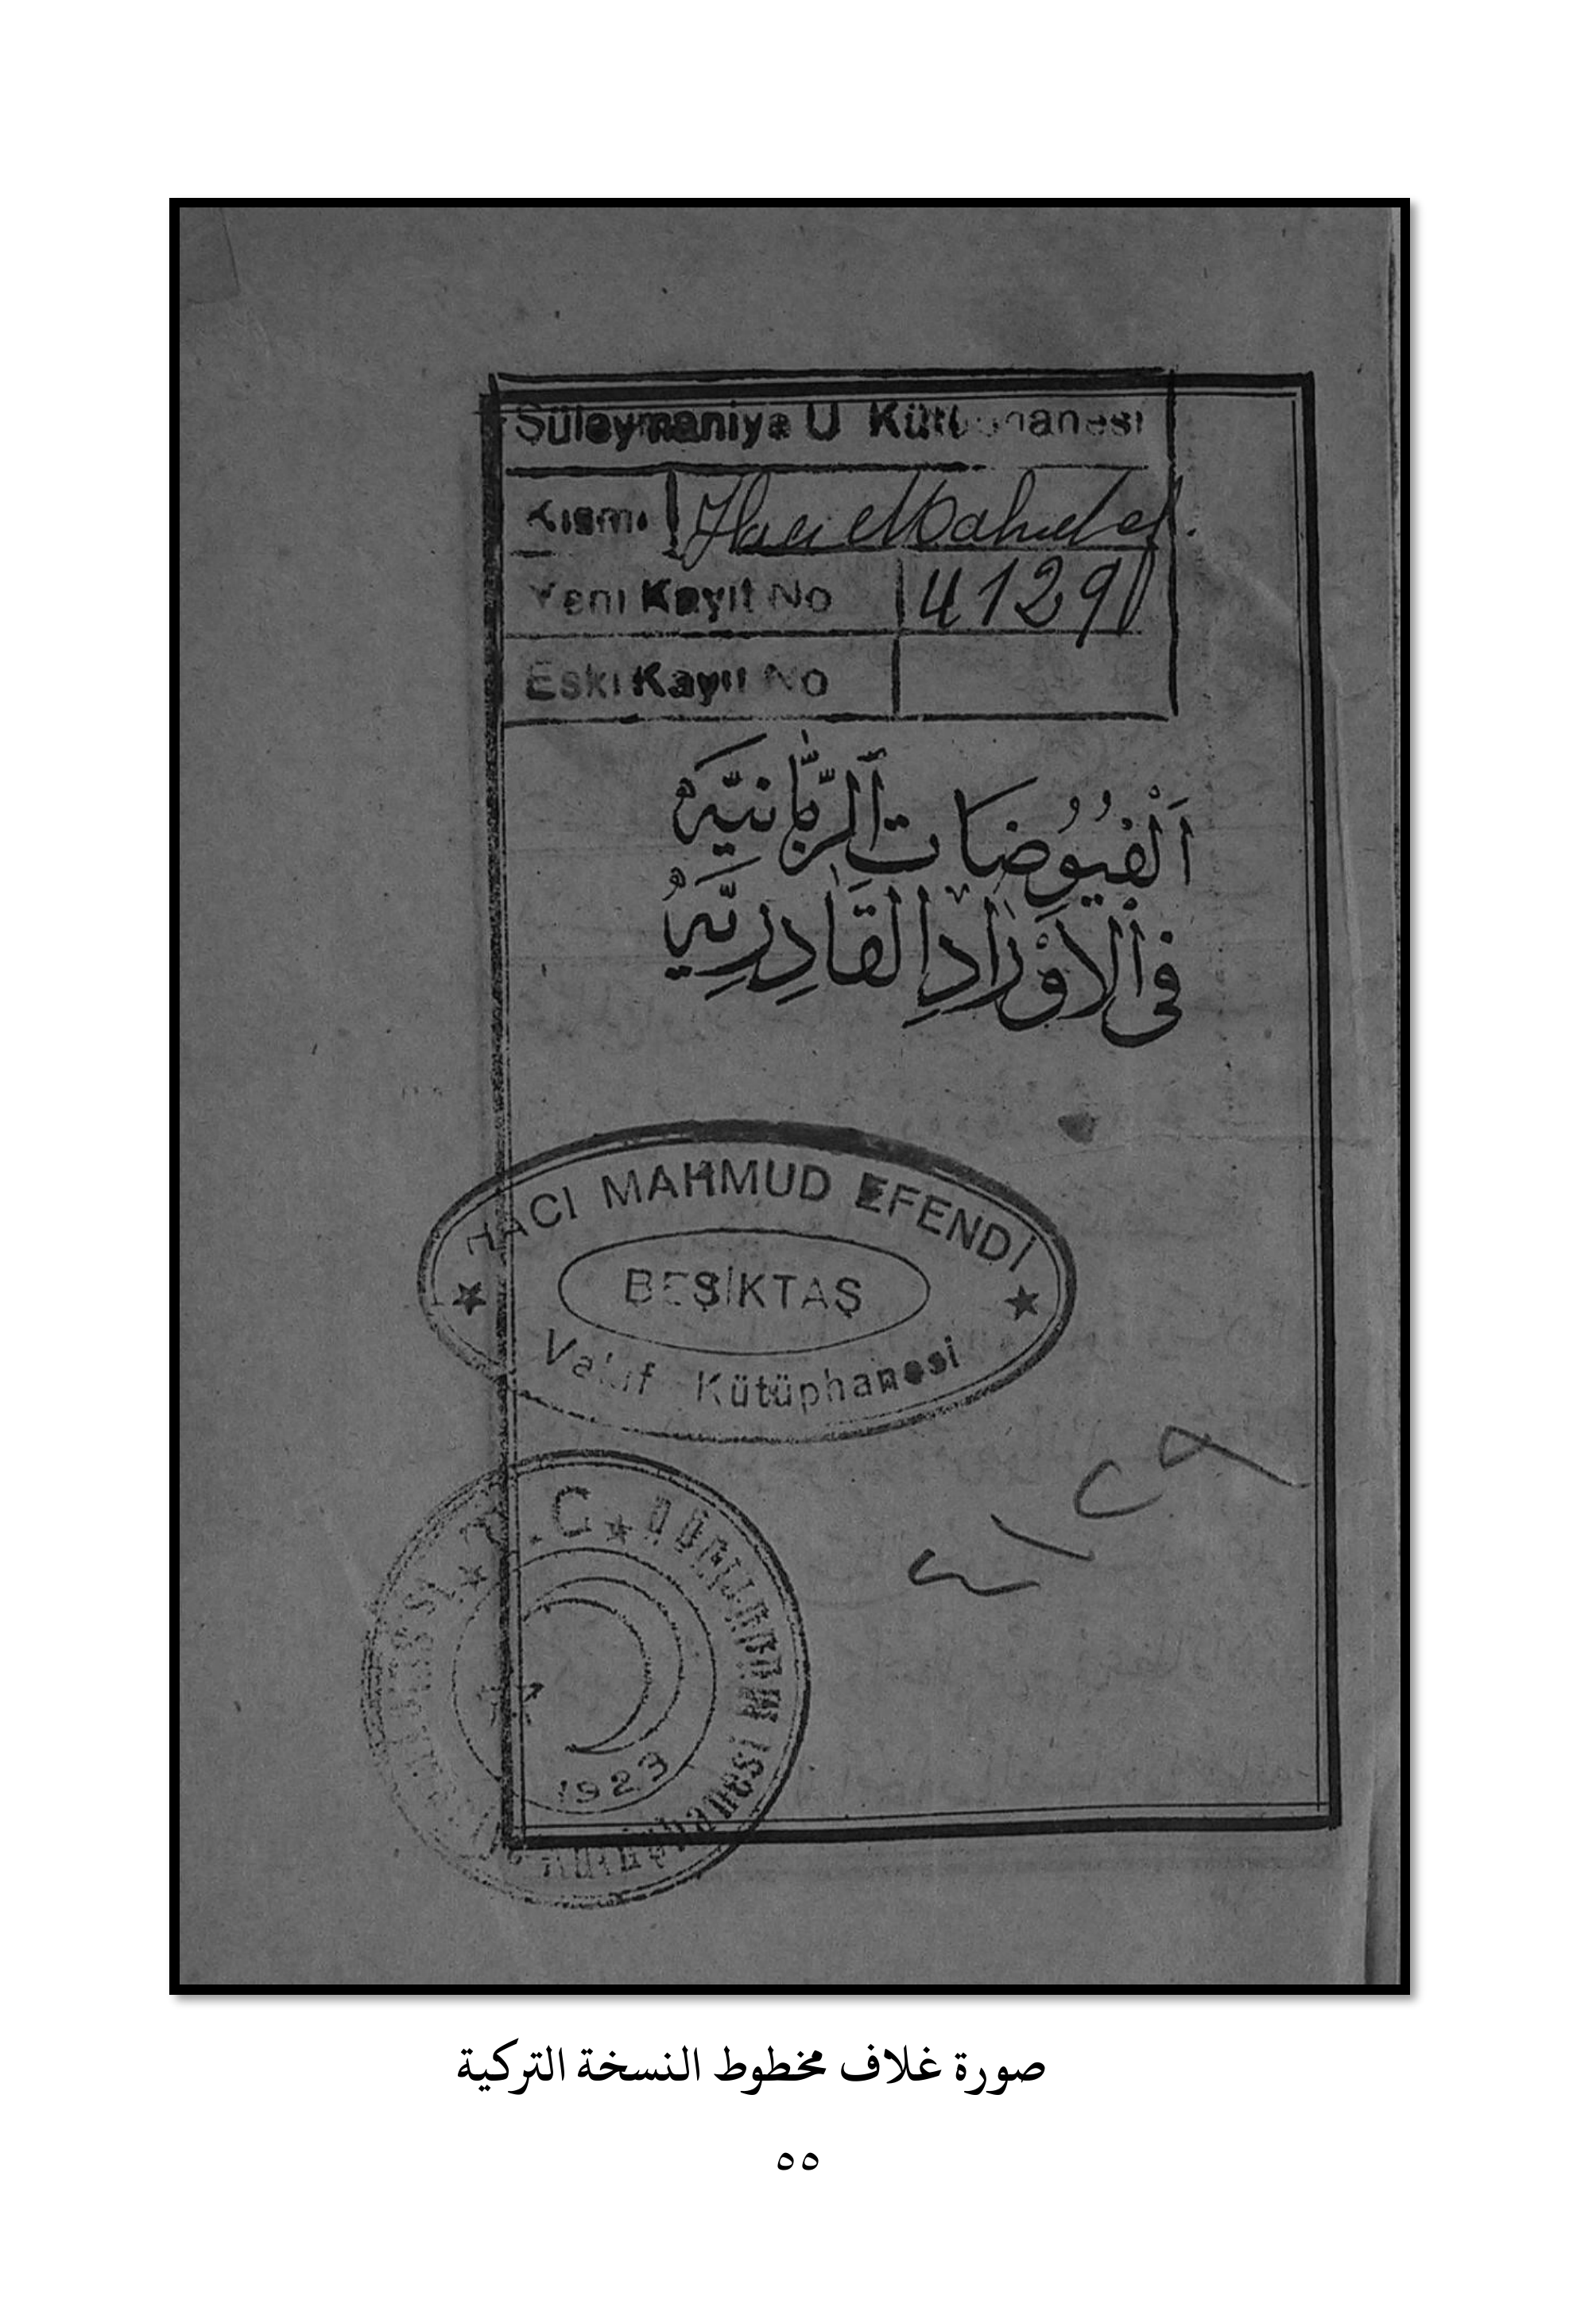 Süleymaniye U Kütüphanesi
Kısmı Hacı Mahmud ef.
Yeni Kayıt No 4129
Eski Kayıt No
اَلْفُيُوضَات ٱلرَّبَّانِيَّه
فِى ٱلاَوْرَادِ القَادِرِيَّه
HACI MAHMUD EFENDİ
BEŞİKTAŞ
Vakıf Kütüphanesi
T.C.
1923
٤١٢٩
صورة غلاف مخطوط النسخة التركية
٥٥